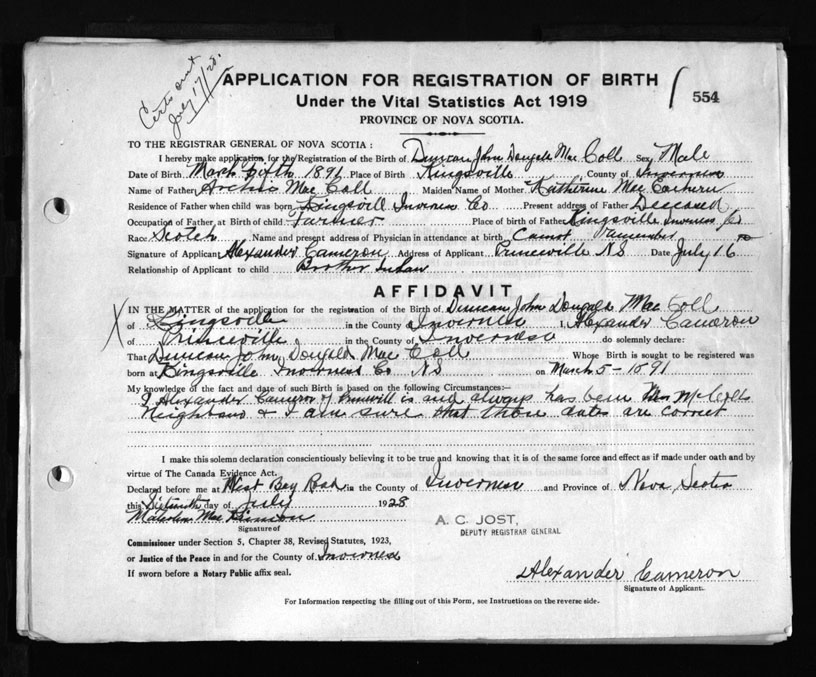 Certs sent
July 17/28.
APPLICATION FOR REGISTRATION OF BIRTH
554
Under the Vital Statistics Act 1919
PROVINCE OF NOVA SCOTIA.
TO THE REGISTRAR GENERAL OF NOVA SCOTIA :
I hereby make application for the Registration of the Birth of Duncan John Dougald Mac Coll Sex Male
Date of Birth March fifth 1891 Place of Birth Kingsville County of Inverness
Name of Father Archie Mac Coll Maiden Name of Mother Katherine Mac Eachern
Residence of Father when child was born Kingsvill Inverness Co Present address of Father Deceased
Occupation of Father at Birth of child Farmer Place of birth of Father Kingsville Inverness Co
Race Scotch Name and present address of Physician in attendance at birth Cannot remember
Signature of Applicant Alexander Cameron Address of Applicant Princeville NS Date July 16th
Relationship of Applicant to child Brother In law
AFFIDAVIT
IN THE MATTER of the application for the registration of the Birth of Duncan John Dougald Mac Coll
of Kingsville in the County of Inverness I, Alexander Cameron
of Princeville in the County of Inverness do solemnly declare:
That Duncan John Dougald Mac Coll Whose Birth is sought to be registered was
born at Kingsville Inverness Co NS on March 5-1891
My knowledge of the fact and date of such Birth is based on the following Circumstances:—
I Alexander Cameron of is and always has been Neighbours & I am sure that these dates are correct
I make this solemn declaration conscientiously believing it to be true and knowing that it is of the same force and effect as if made under oath and by
virtue of The Canada Evidence Act.
Declared before me at West Bay Road in the County of Inverness and Province of Nova Scotia
this Sixteenth day of July 1928
Malcolm Mac Kinnon
Signature of
A. C. JOST,
DEPUTY REGISTRAR GENERAL
Commissioner under Section 5, Chapter 38, Revised Statutes, 1923,
or Justice of the Peace in and for the County of Inverness
If sworn before a Notary Public affix seal.
Alexander Cameron
Signature of Applicant.
For Information respecting the filling out of this Form, see Instructions on the reverse side.